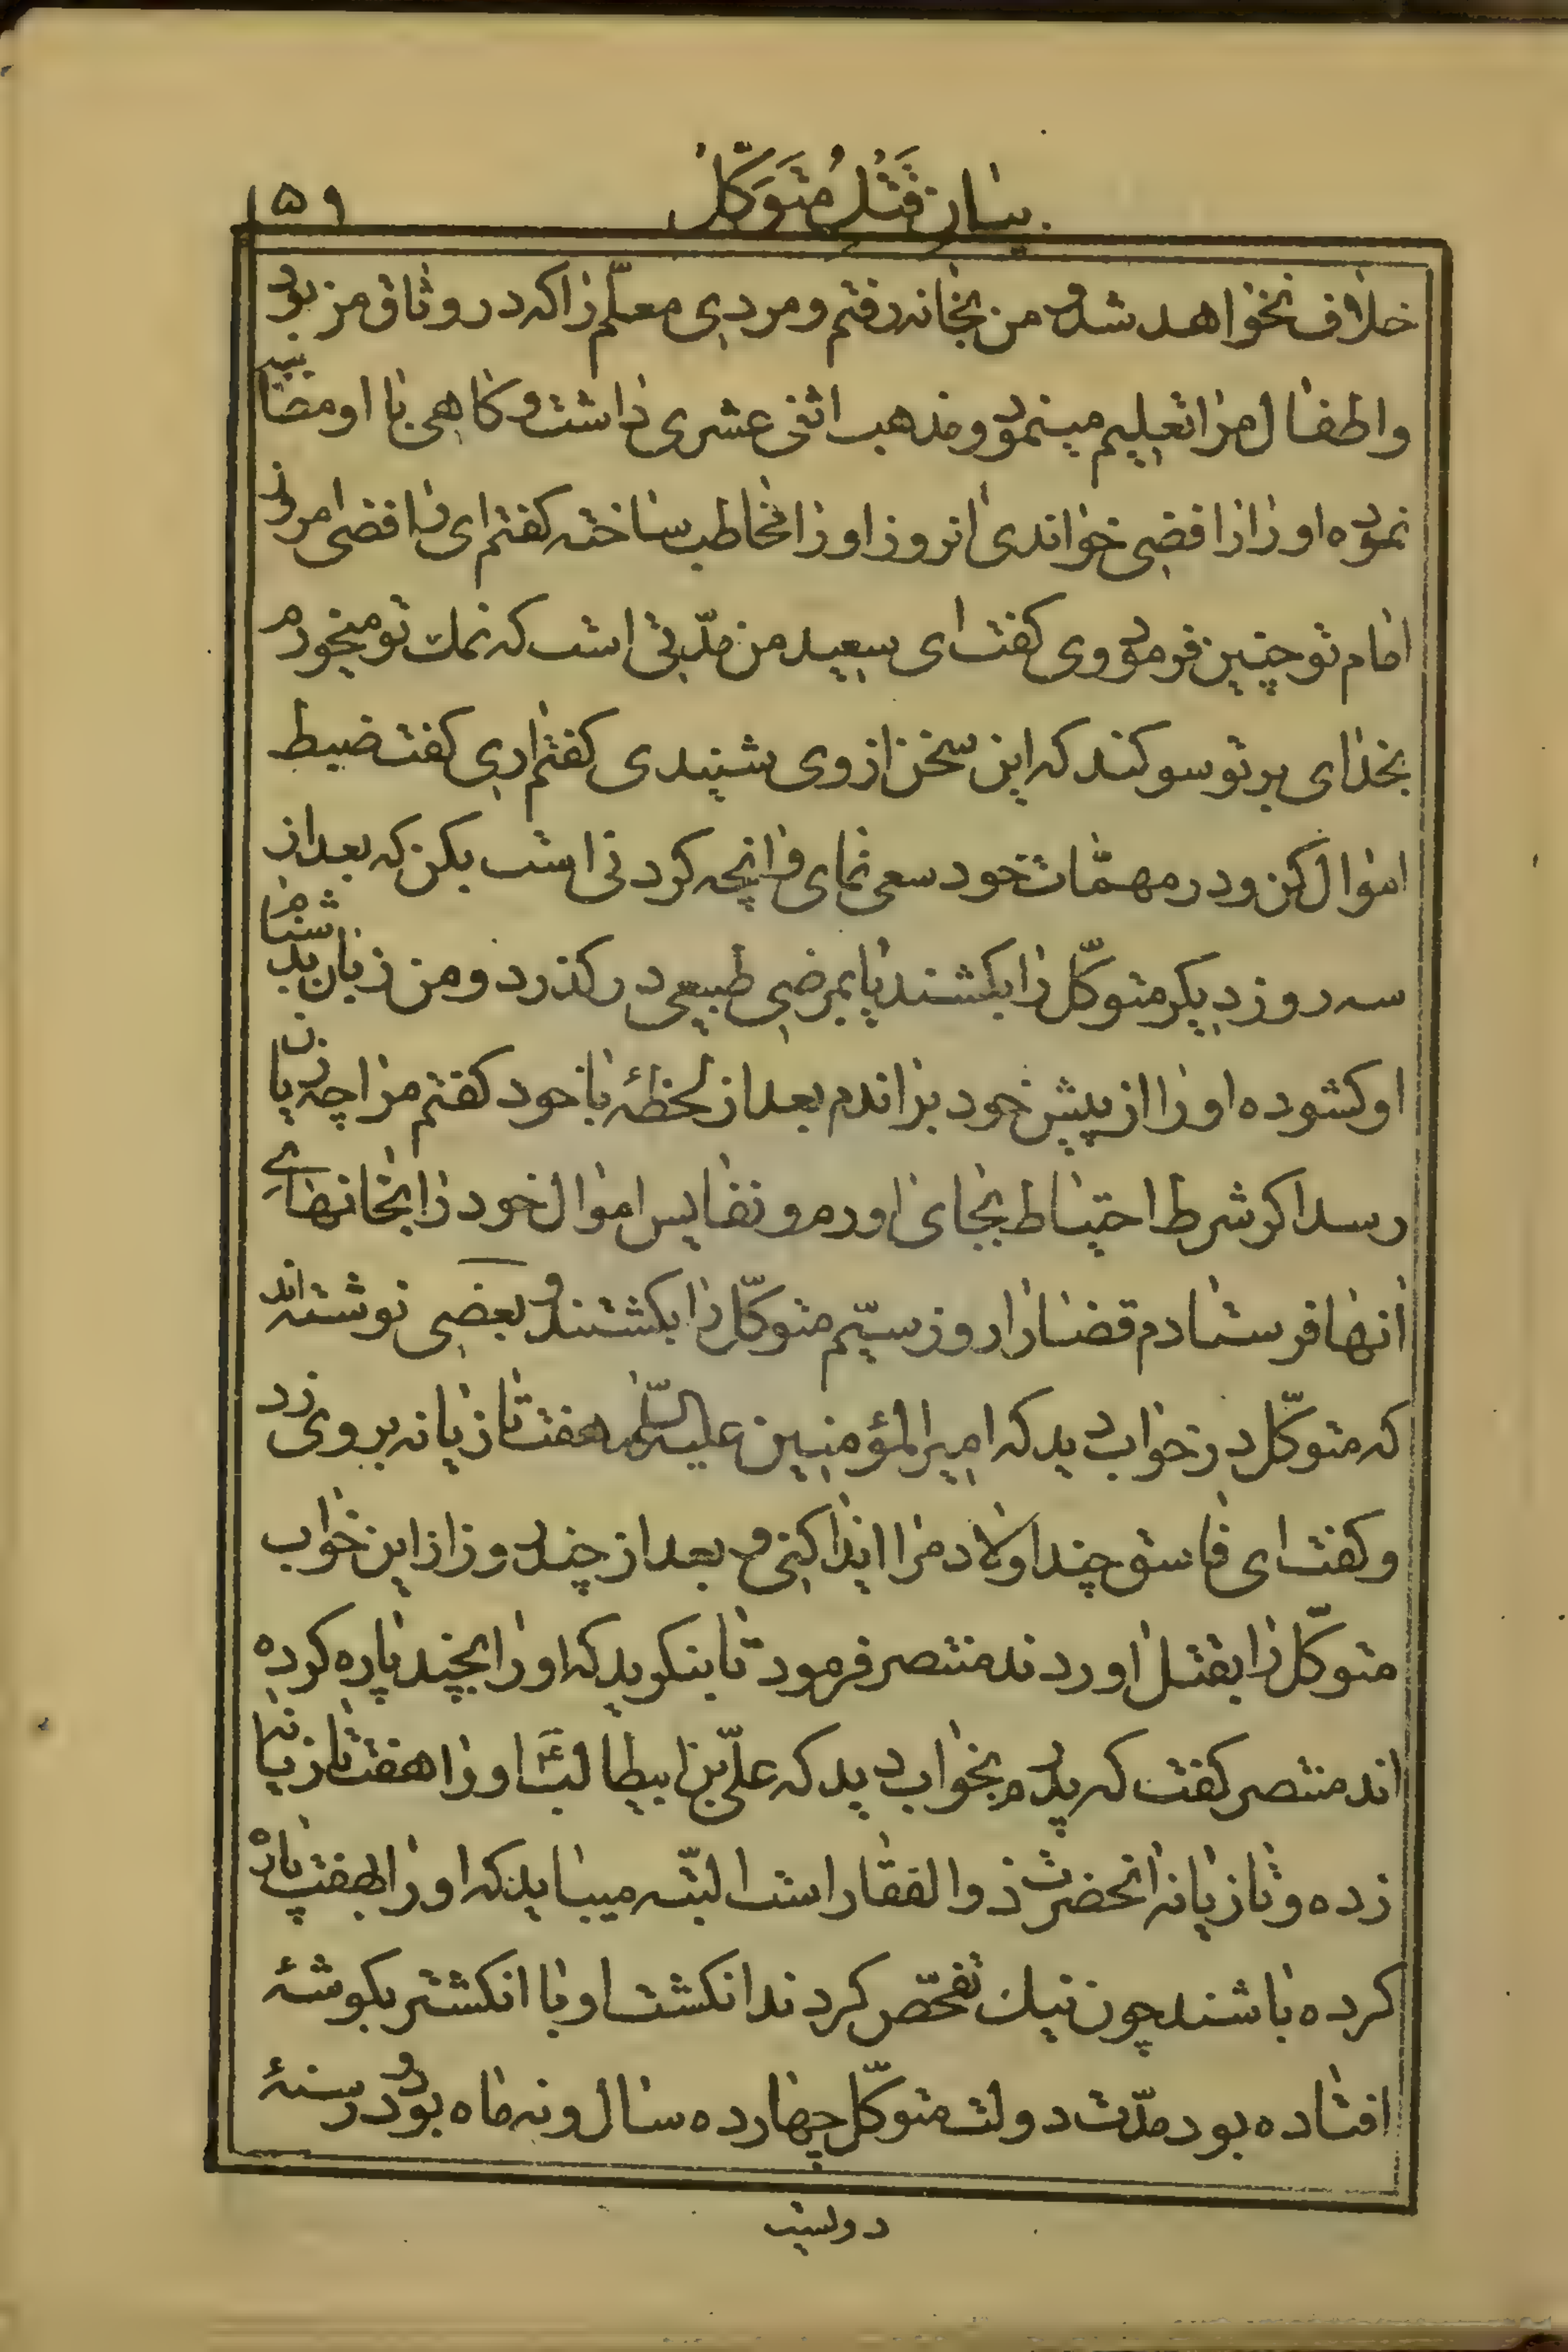 بیان قَتْلُ مُتَوَکّلْ
۱۵۹
خلاف نخواهد شد و من بخانه رفتم و مردی معلّم را که در وثاق من بود
و اطفال مرا تعلیم مینمود و مذهب اثنی عشری داشت و کاهی با او مضا
نموده او را رافضی خواندی انروز او را مخاطب ساخته کفتم ای رافضی امروز
امام تو چنین فرمود وی کفت ای سعید من مدّتی است که نمک تو میخورم
بخدای بر تو سوکند که این سخن از وی شنیدی کفتم اری کفت ضبط
اموال کن و در مهمّات خود سعی نمای و انچه کردنی است بکن که بعد از
سه روز دیکر متوکّل را بکشند یا بمرضی طبیعی در کذرد و من زبان بدشنام
او کشوده او را از پیش خود براندم بعد از لحظهٔ با خود کفتم مرا چه زیان
رسد اکر شرط احتیاط بجای اورم و نفایس اموال خود را بخانهای
انها فرستادم قضا را روز سیّم متوکّل را بکشتند و بعضی نوشته اند
که متوکّل در خواب دید که امیر المؤمنین علیه السّلام هفت تازیانه بر وی زد
و کفت ای فاسق چند اولاد مرا ایذا کنی و بعد از چند روز از این خواب
متوکّل را بقتل اوردند منتصر فرمود تا بنکرید که او را بچند پاره کرده
اند منتصر کفت که پدرم بخواب دید که علیّ بن ابیطالبؑ او را هفت تازیانه
زده و تازیانه انحضرت ذو الفقار است البتّه میباید که او را بهفت پاره
کرده باشند چون نیک تفحّص کردند انکشت او با انکشتر بکوشهٔ
افتاده بود مدّت دولت متوکّل چهارده سال و نه ماه بود و در سنهٔ
دولیت